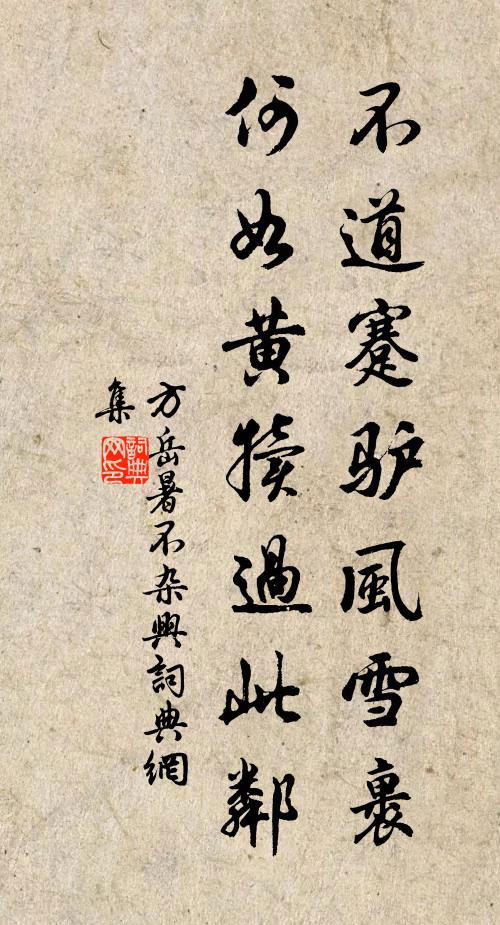 不道蹇驴風雪裹
何如黄犢過此鄰
方岳暑不杂興詞典網
集
詞典
网印